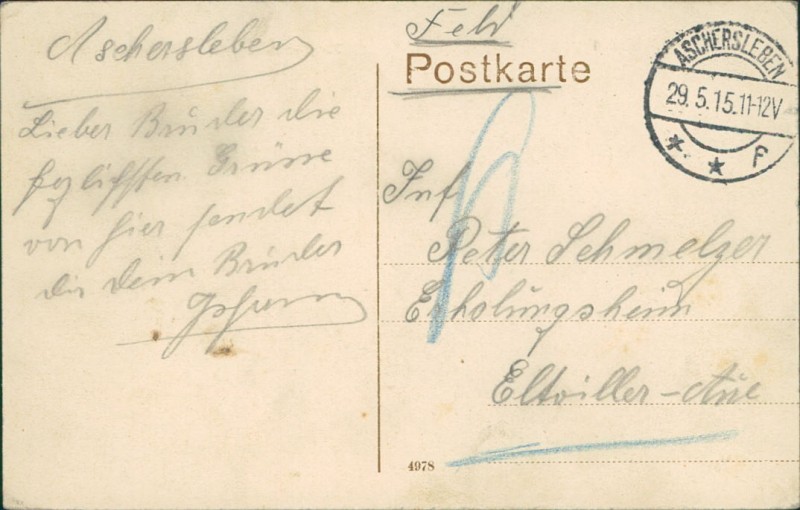 Aschersleben
Lieber Bruder die
herzlichsten Grüsse
von hier sendet
dir dein Bruder
Feld
Postkarte
ASCHERSLEBEN
29.5.15.11-12V
* * F
Inf
Peter Schmelzer
Erholungsheim
Eltviller-Aue
4978